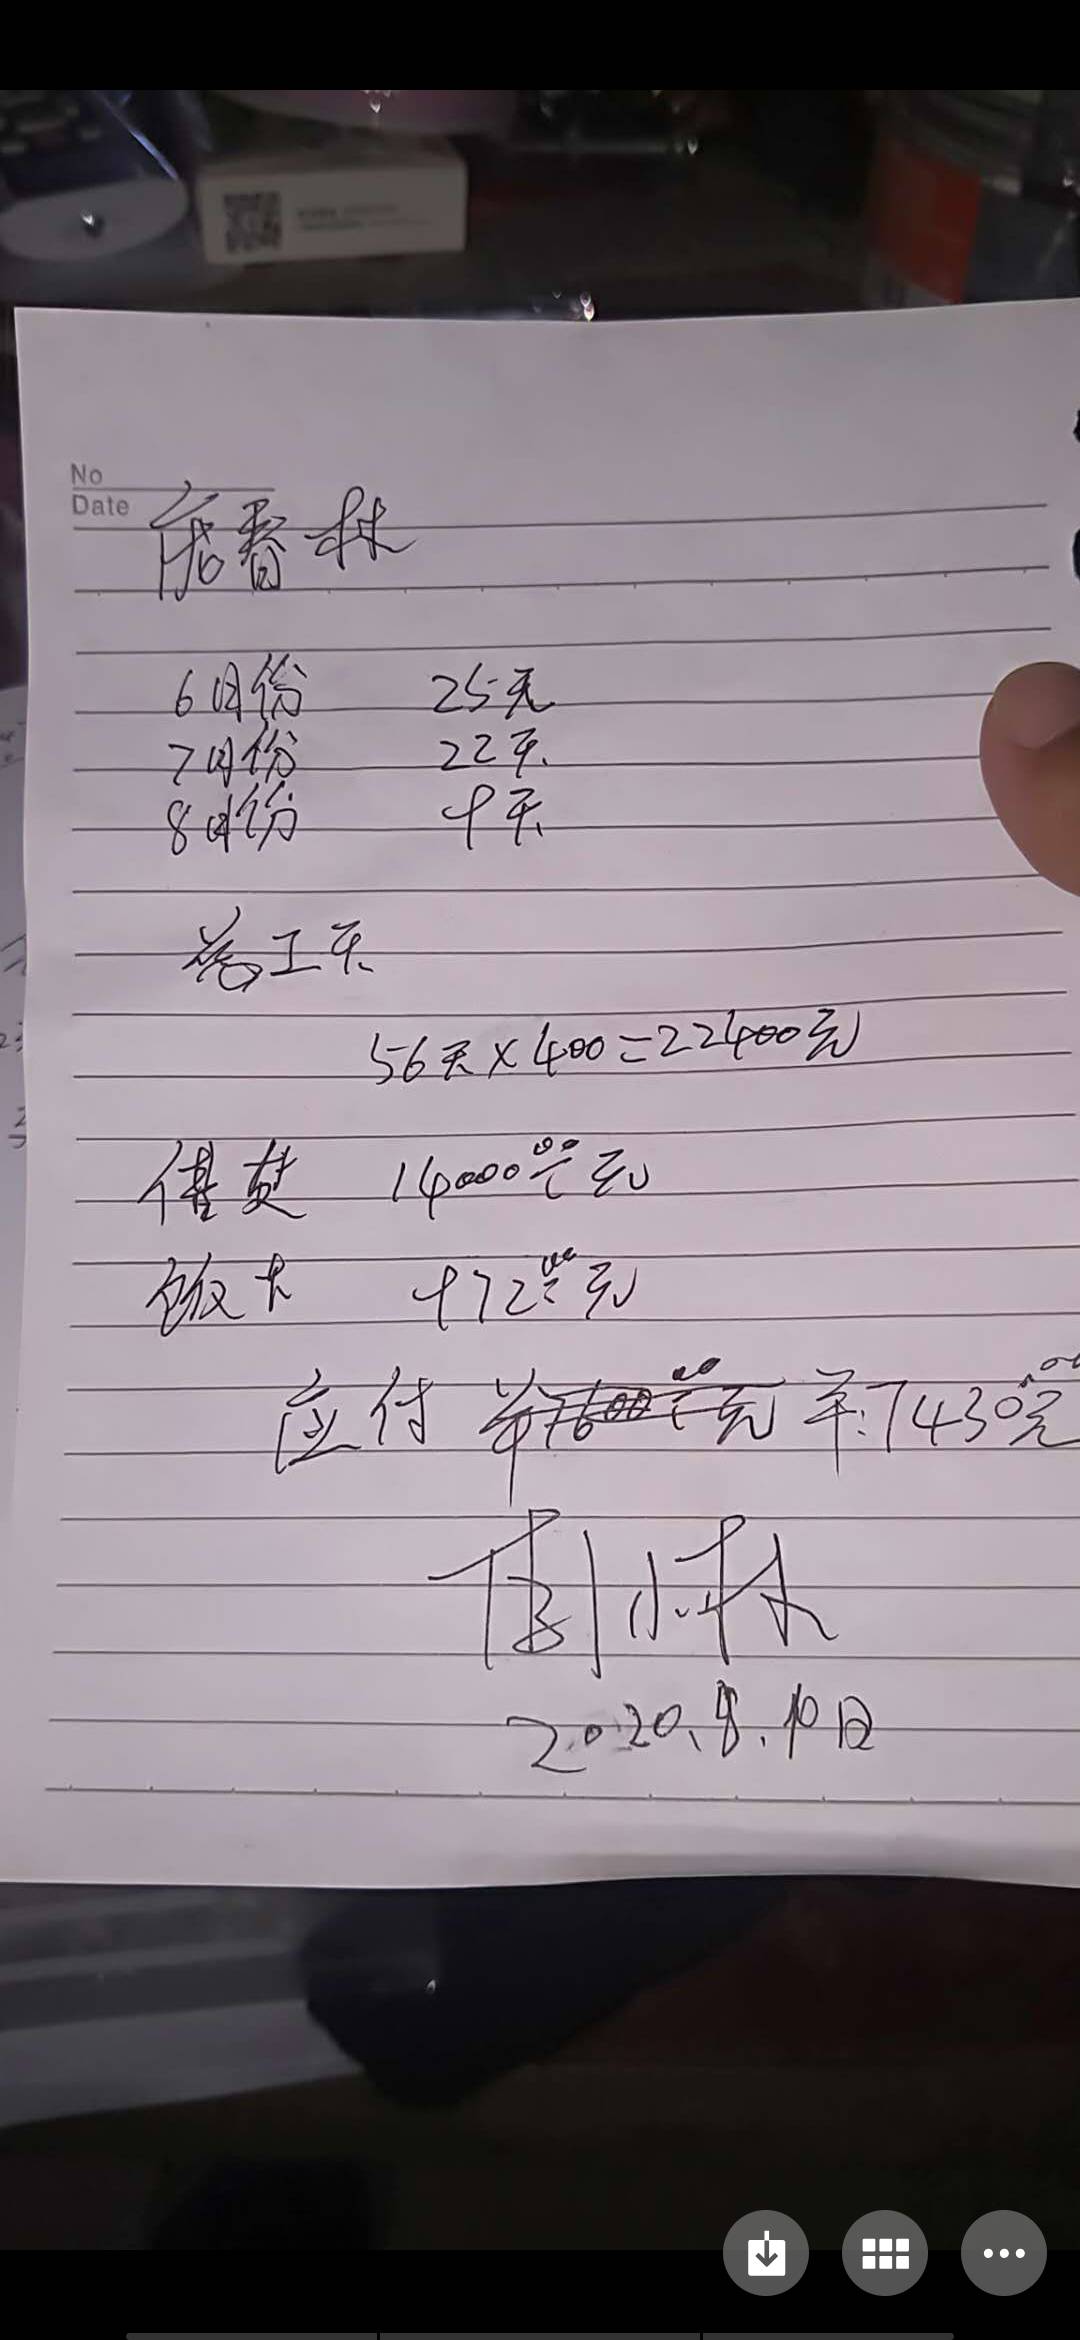 No
Date
春林
6月份 25天
7月份 22天
8月份 9天
总工天
56天×400=22400元
借支 14000.00元
饭卡 972.00元
应付 7430.00元
小林
2020.8.10日